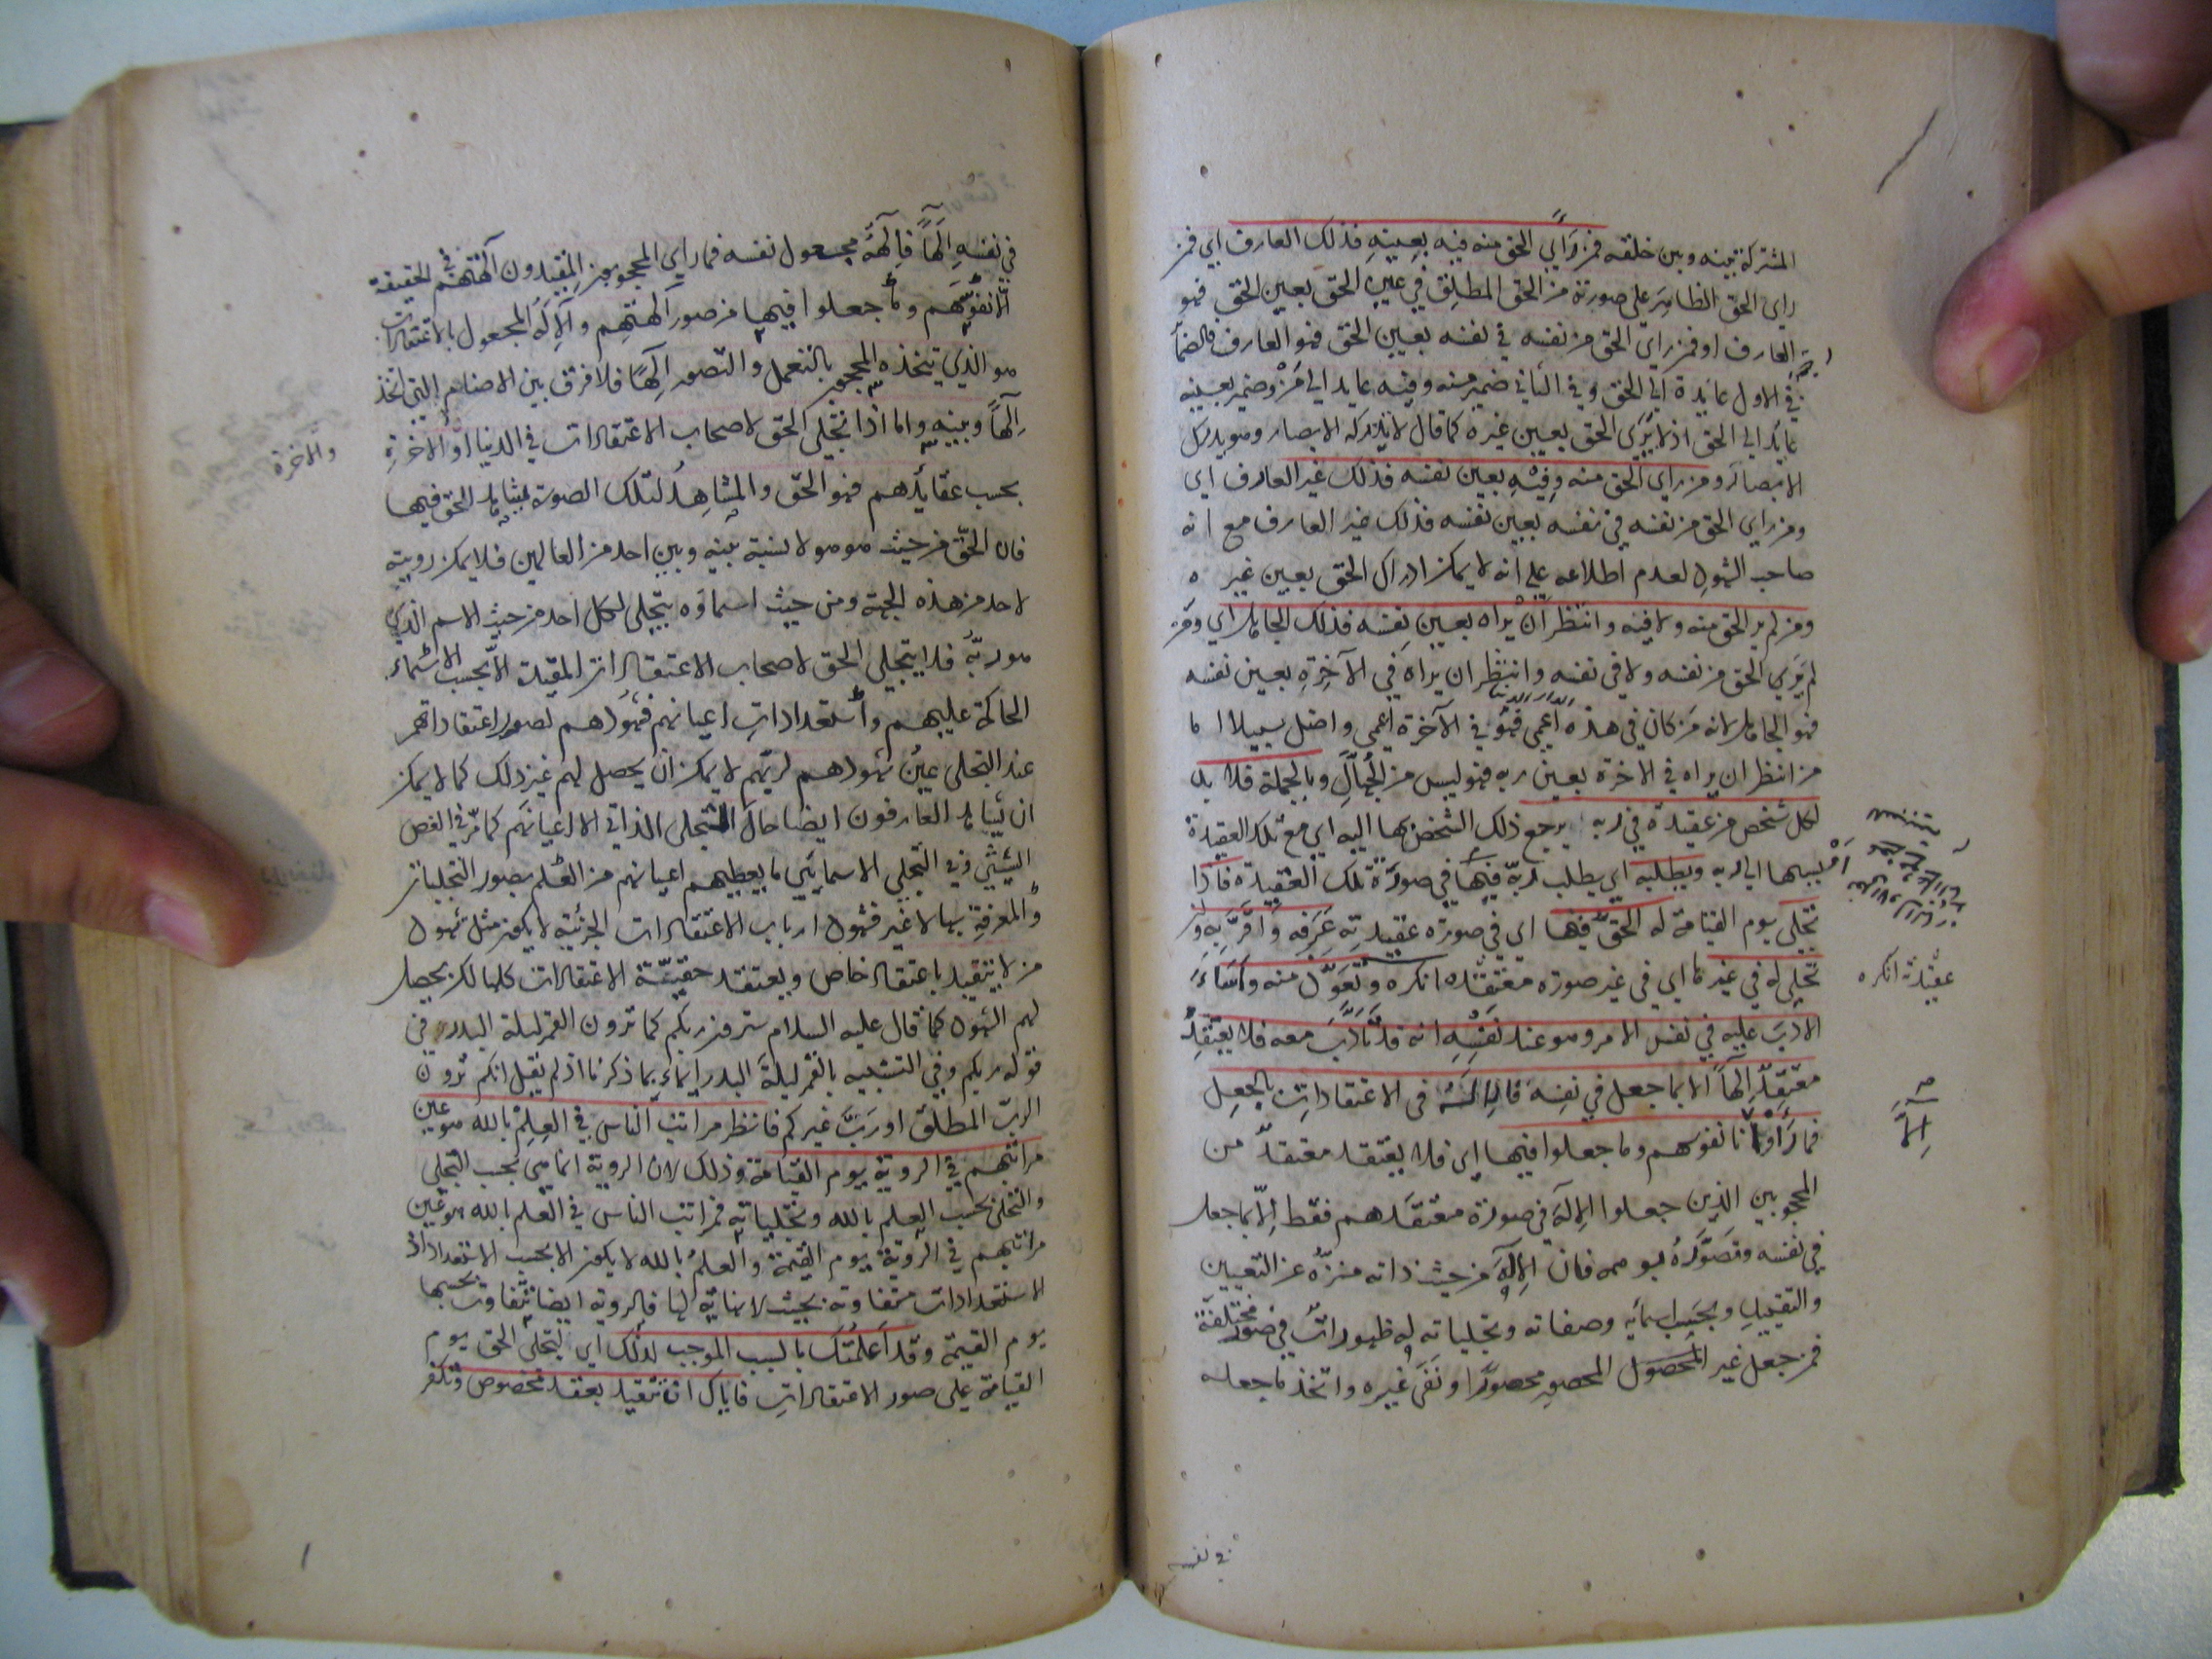 المشتركة بينه وبين خلقه فمن رأى الحق منه فيه بعينه فذلك العارف اي فمن
راى الحق الظاهر على صورته من الحق المطلق في عين الحق بعين الحق فهو
العارف او فمن راى الحق من نفسه في نفسه بعين الحق فهو العارف فالضمائر
في الاول عايدة الى الحق وفي الثاني ضمير منه وفيه عايد الى من وضمير بعينه
عايد الى الحق اذ لا يرى الحق بعين غيره كما قال لا تدركه الابصار وهو يدرك
الابصار ومن راى الحق منه وفيه بعين نفسه فذلك غير العارف اي
ومن راى الحق من نفسه في نفسه بعين نفسه فذلك غير العارف مع انه
صاحب الشهود لعدم اطلاعه على انه لا يمكن ادراك الحق بعين غيره
ومن لم ير الحق منه ولا فيه وانتظر ان يراه بعين نفسه فذلك الجاهل اي ومن
لم يرى الحق من نفسه ولا في نفسه وانتظر ان يراه في الآخرة بعين نفسه
فهو الجاهل لانه من كان في هذه الدار الدنيا اعمى فهو في الآخرة اعمى واضل سبيلا اما
من انتظر ان يراه في الاخرة بعين ربه فهو ليس من الجهال وبالجملة فلا بد
لكل شخص من عقيدة في ربه يرجع ذلك الشخص بها اليه اي مع تلك العقيدة
الى ربه ويطلبه اي يطلب ربه فيها في صورة تلك العقيدة فاذا
تجلى يوم القيامة له الحق فيها اي في صورة عقيدته عرفه واقر به و
تجلى له في غيرها اي في غير صورة معتقده انكره وتعوذ منه واساء
عقيدة انكره
الادب عليه في نفس الامر وهو عند نفسه انه قد تادب معه فلا يعتقد
معتقد الها الا بما جعل في نفسه فالاله في الاعتقادات بالجعل
فما رأوا الا نفوسهم وما جعلوا فيها اي فلا يعتقد معتقد من
المحجوبين الذين جعلوا الاله في صورة معتقدهم فقط الا بما جعل
في نفسه وتصوره بوهمه فان الاله من حيث ذاته منزه عن التعيين
والتقييد وبحسب اسمائه وصفاته وتجلياته له ظهورات في صور مختلفة
فمن جعل غير المحصور محصورا ونفى غيره واتخذ ما جعله
في نفسه
في نفسه الها فالهه مجعول نفسه فما راى المحجوبون المقيدون آلهتهم في الحقيقة
الا نفوسهم وما جعلوا فيها من صور آلهتهم والاله المجعول بالاعتقادات
هو الذي يتخذه المحجوب بالتعمل والتصور الها فلا فرق بين الاصنام التي اتخذ
الها وبينه واما اذا تجلى الحق لاصحاب الاعتقادات في الدنيا او الآخرة
والاخرة
بحسب عقايدهم فهو الحق والمشاهد لتلك الصورة يشاهد الحق فيها
فان الحق من حيث هو هو لا نسبة بينه وبين احد من العالمين فلا يمكن رويته
لاحد من هذه الجهة ومن حيث اسماؤه يتجلى لكل احد من حيث الاسم الذي
هو ربه فلا يتجلى الحق لاصحاب الاعتقادات المقيدة الا بحسب الاسماء
الحاكمة عليهم واستعدادات اعيانهم فشهودهم لصور اعتقاداتهم
عند التجلي عين شهودهم لربهم لا يمكن ان يحصل لهم غير ذلك كما لا يمكن
ان يشاهد العارفون ايضا حال التجلي الذاتي الا اعيانهم كما مر في الفص
الشيثي وفي التجلي الاسمائي ما يعطيهم اعيانهم من العلم بصور التجليات
والمعرفة بها لا غير فشهود ارباب الاعتقادات الجزئية لا يكون مثل شهود
من لا يتقيد باعتقاد خاص ويعتقد حقيّة الاعتقادات كلها لكن يحصل
لهم الشهود كما قال عليه السلام سترون ربكم كما ترون القمر ليلة البدر في
قوله ربكم وفي التشبيه بالقمر ليلة البدر ايماء بما ذكرنا اذ لم يقل انكم ترون
الرب المطلق او رب غيركم فانظر مراتب الناس في العلم بالله هو عين
مراتبهم في الروية يوم القيامة وذلك لان الروية انما هي بحسب التجلي
والتجلي بحسب العلم بالله وتجلياته فمراتب الناس في العلم بالله هو عين
مراتبهم في الروية يوم القيمة والعلم بالله لا يكون الا بحسب الاستعداد اذ
الاستعدادات متفاوتة بحيث لا نهاية لها فالروية ايضا تتفاوت بحسبها
يوم القيمة وقد اعلمتك بالسبب الموجب لذلك اي لتجلي الحق يوم
القيامة على صور الاعتقادات فاياك ان تتقيد بعقد مخصوص وتكفر